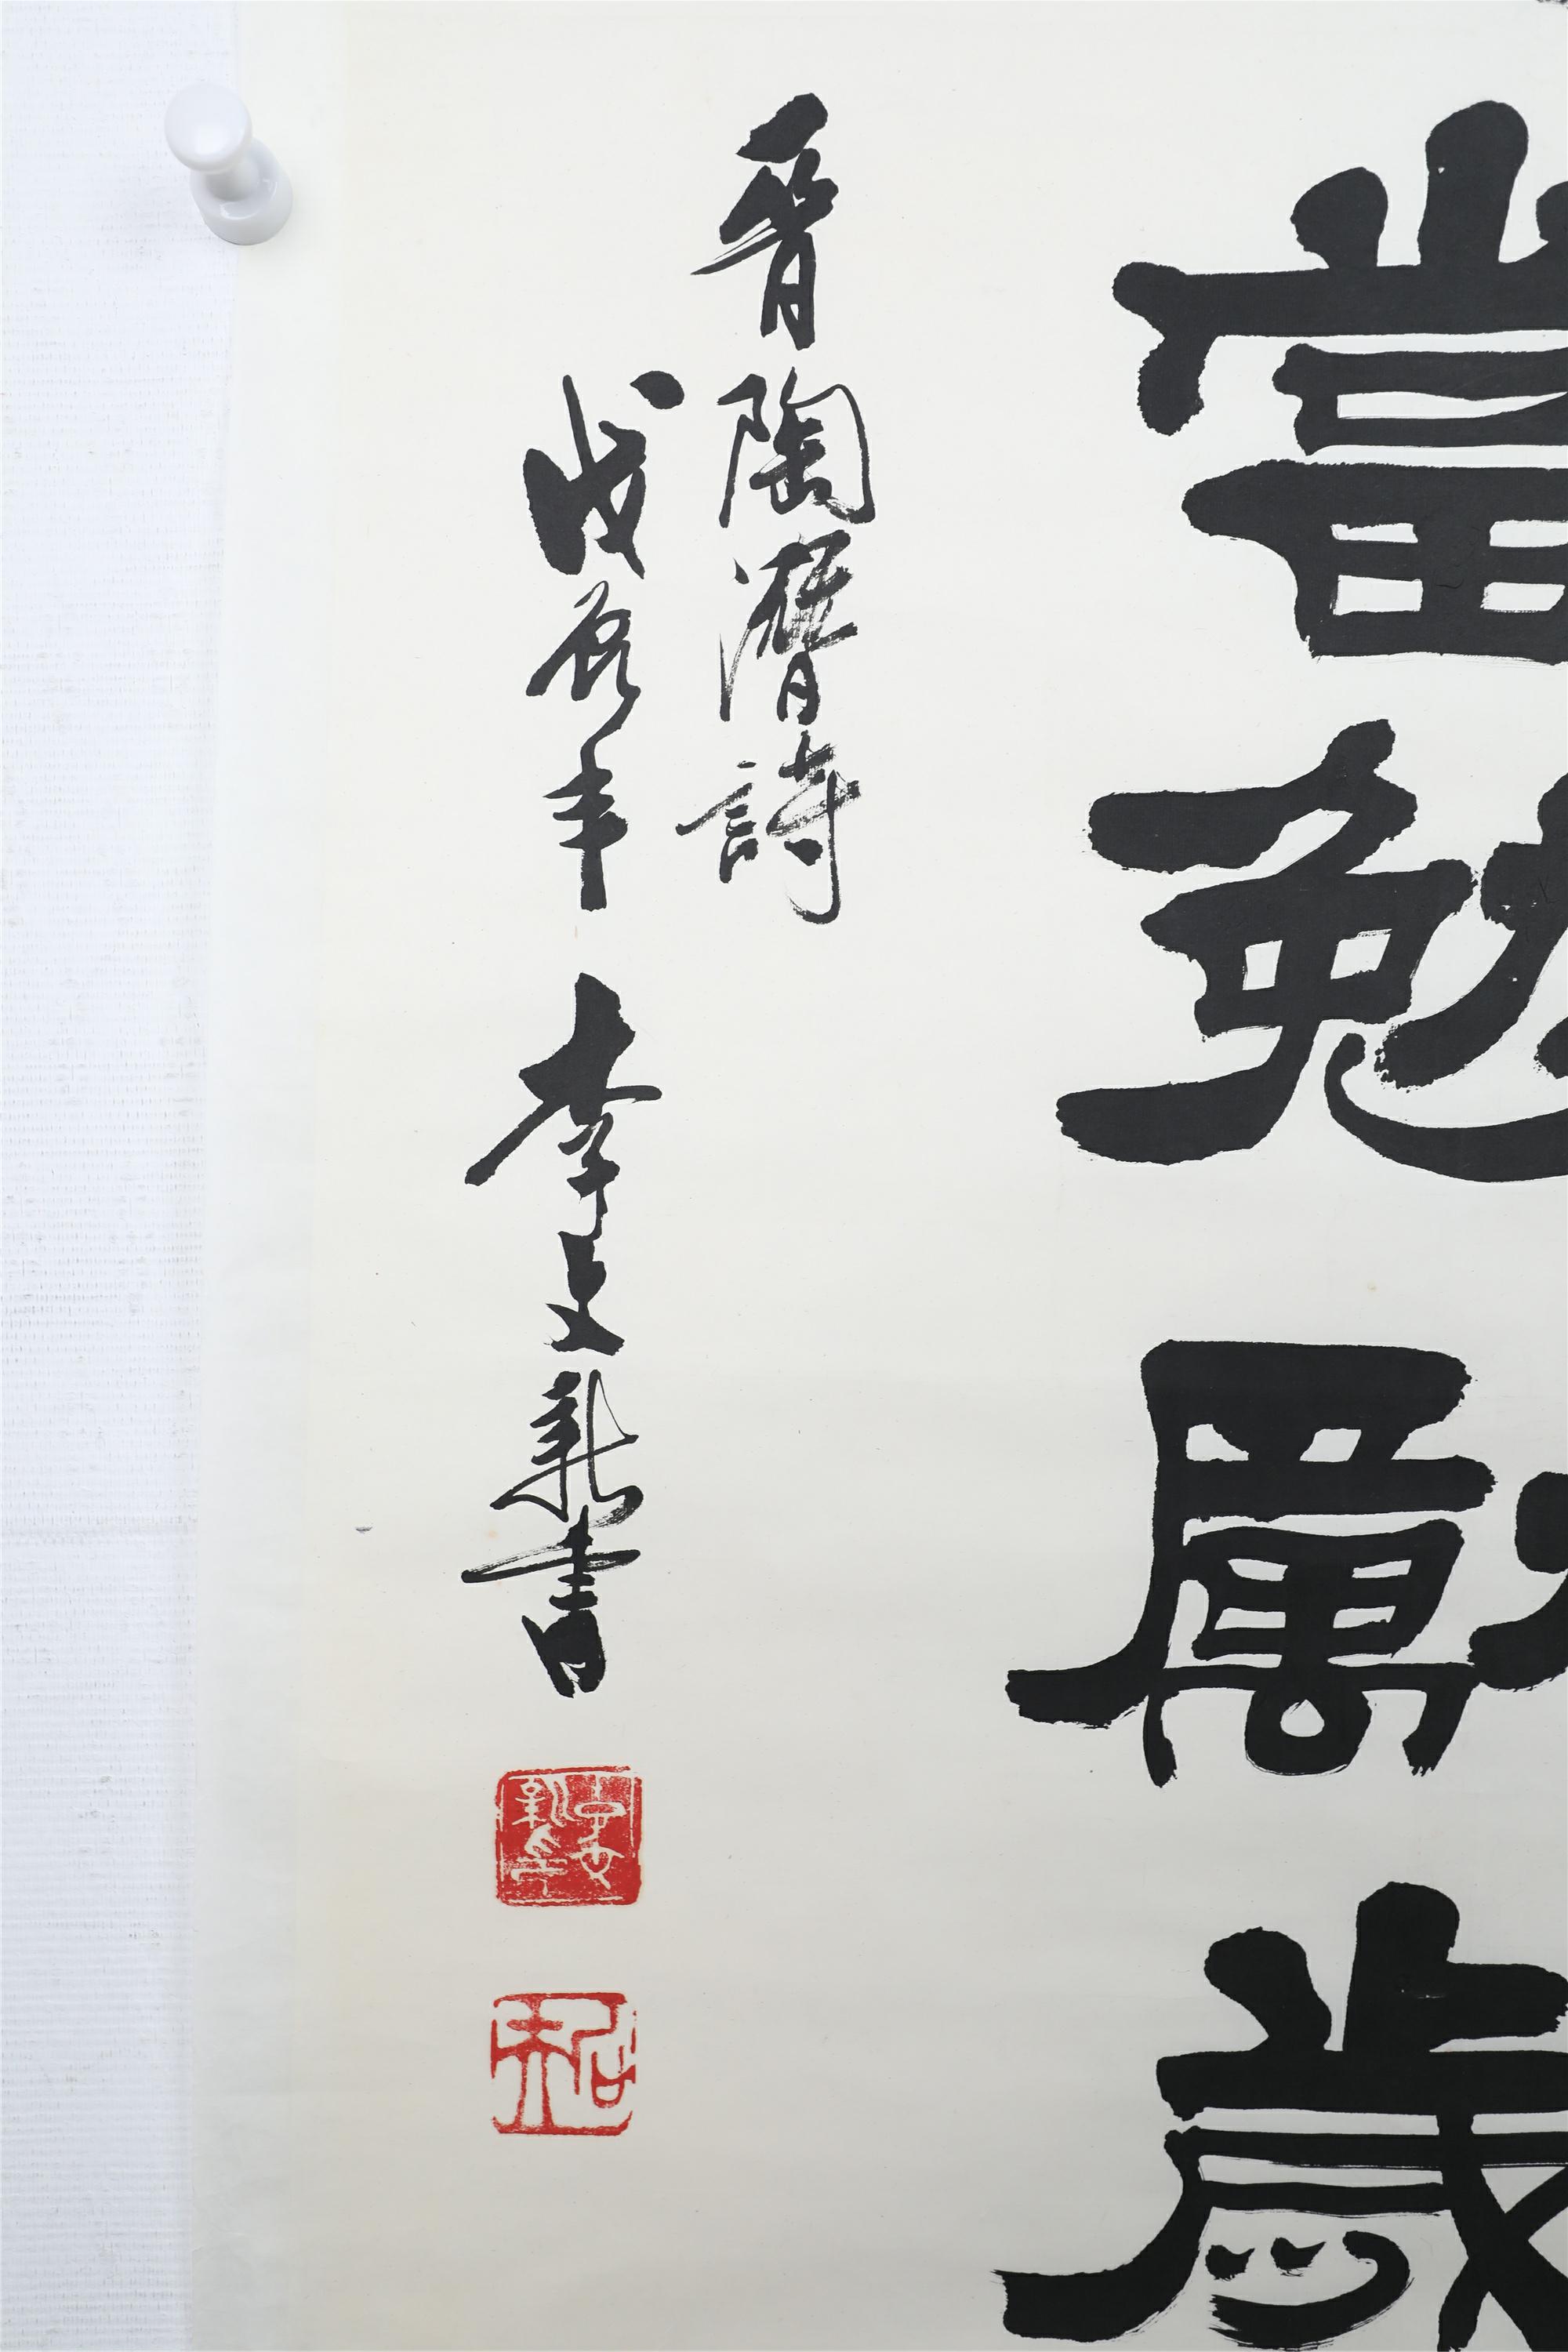 當勉勵歲
晉陶潛詩
戊辰年 李文新書
李文新印